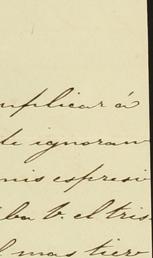 uplicar á
de ignoran
mis espresio
iba V. el tris
l mas tier